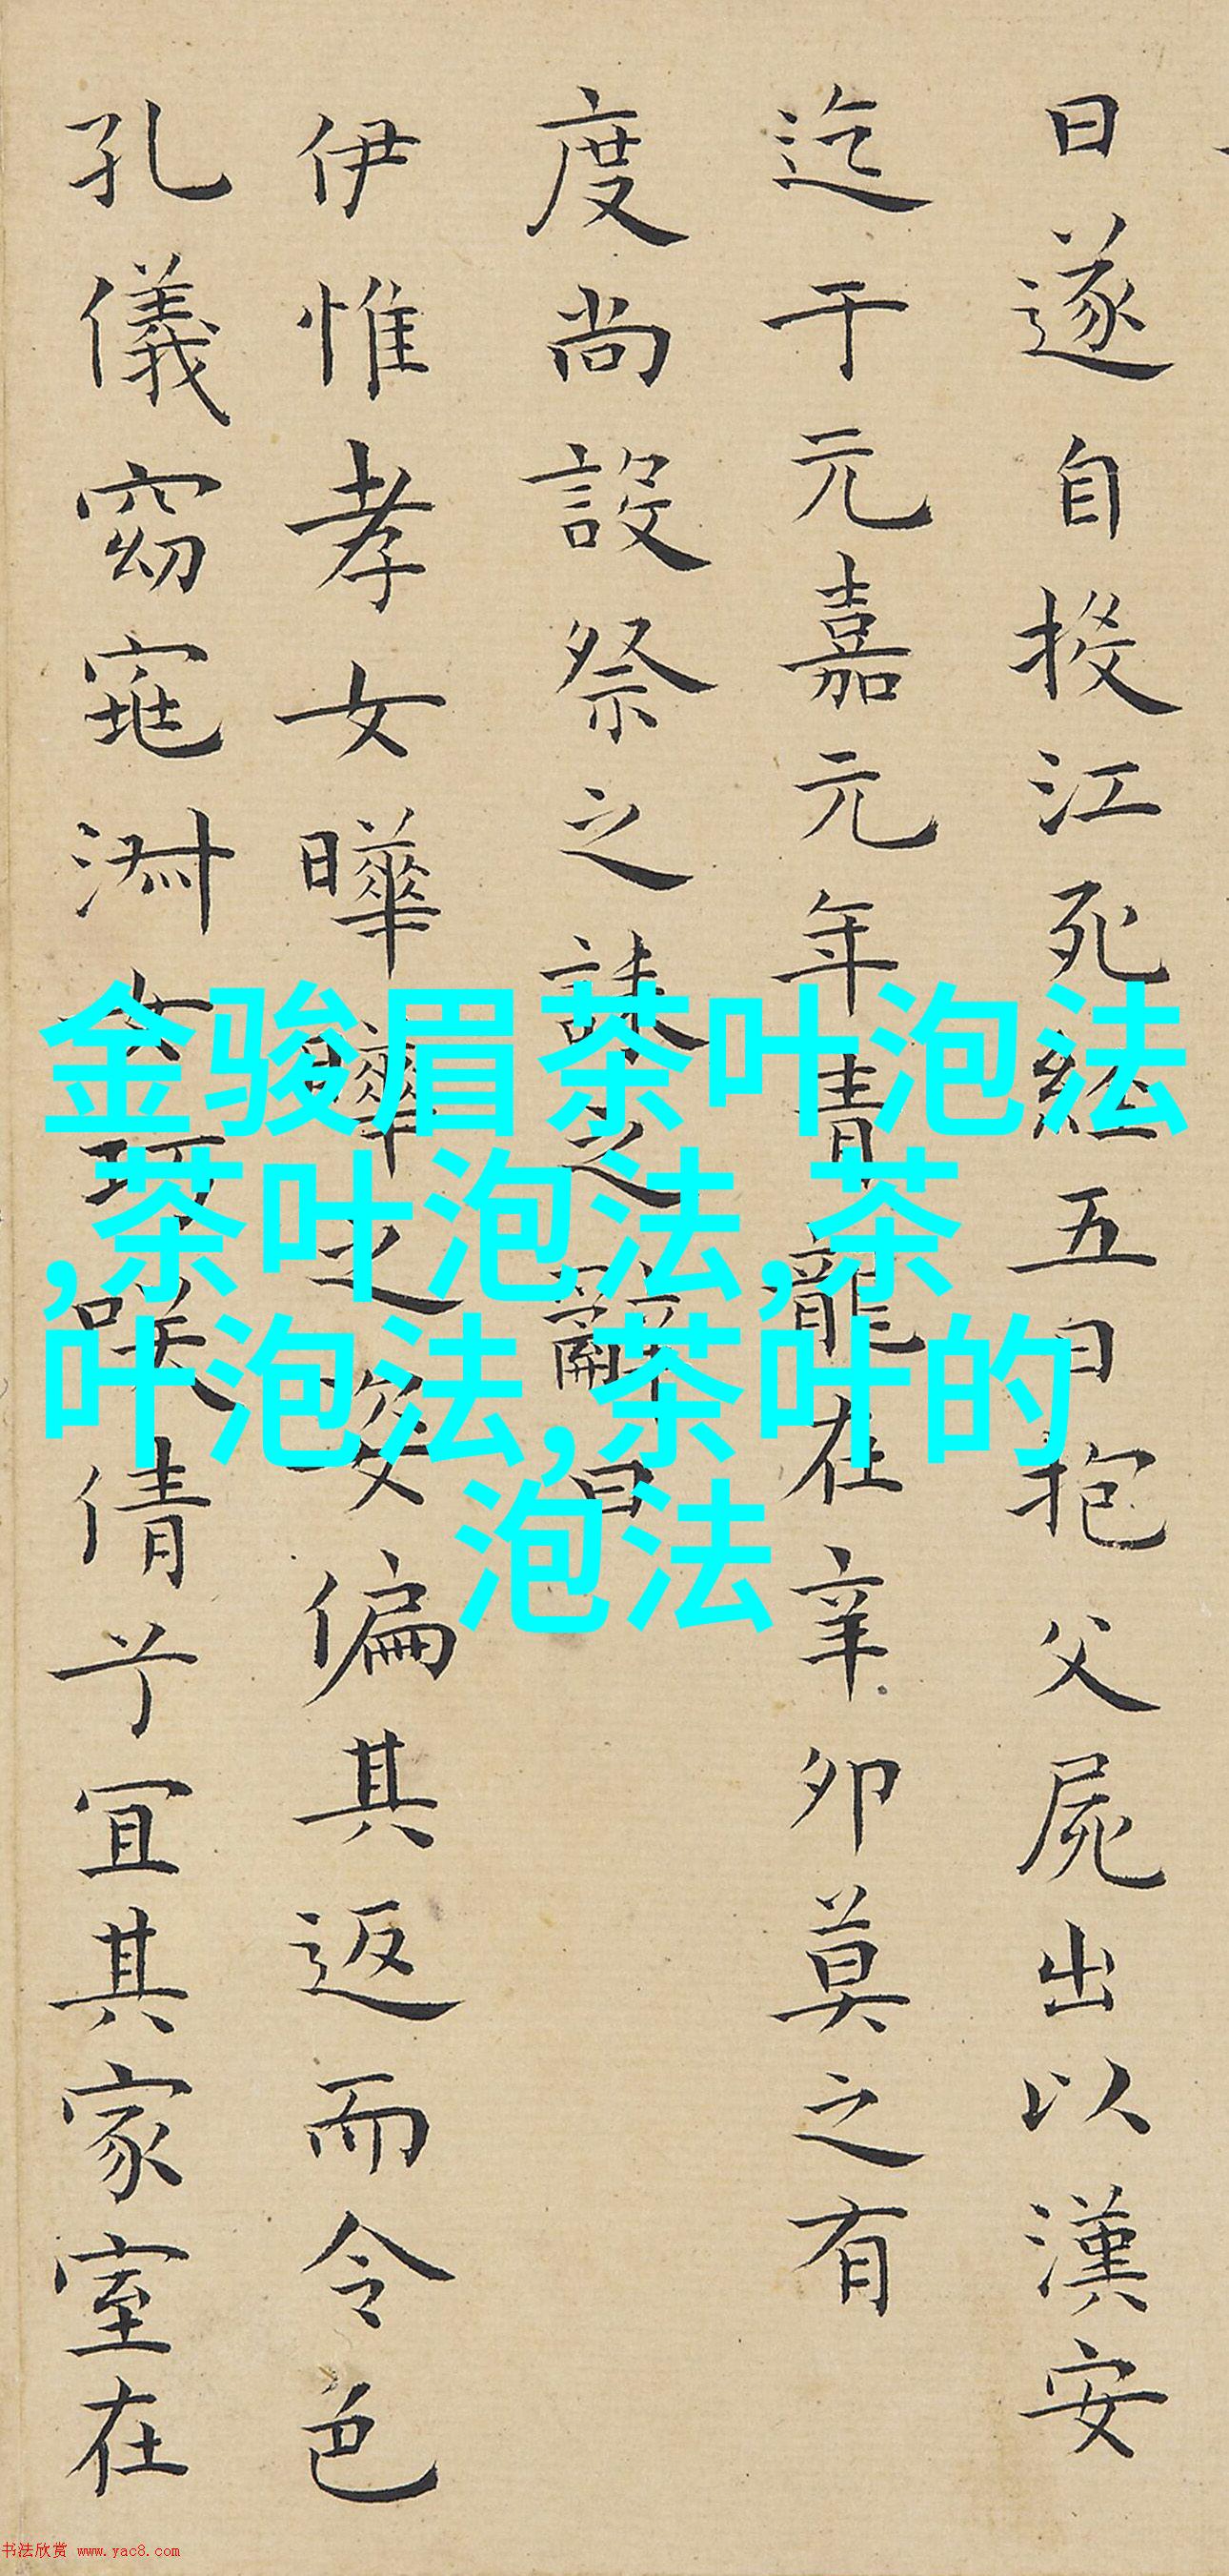 日遂自投江死經五日抱父屍出以漢安
迄于元嘉元年青龍在辛卯莫之有
度尚設祭之誄之辭曰
伊惟孝女曄曄之姿偏其返而令色
孔儀窈窕淑女巧咲倩兮宜其家室在
金骏眉茶叶泡法
,茶叶泡法,茶
叶泡法,茶叶的
泡法
书法欣赏 www.yac8.com